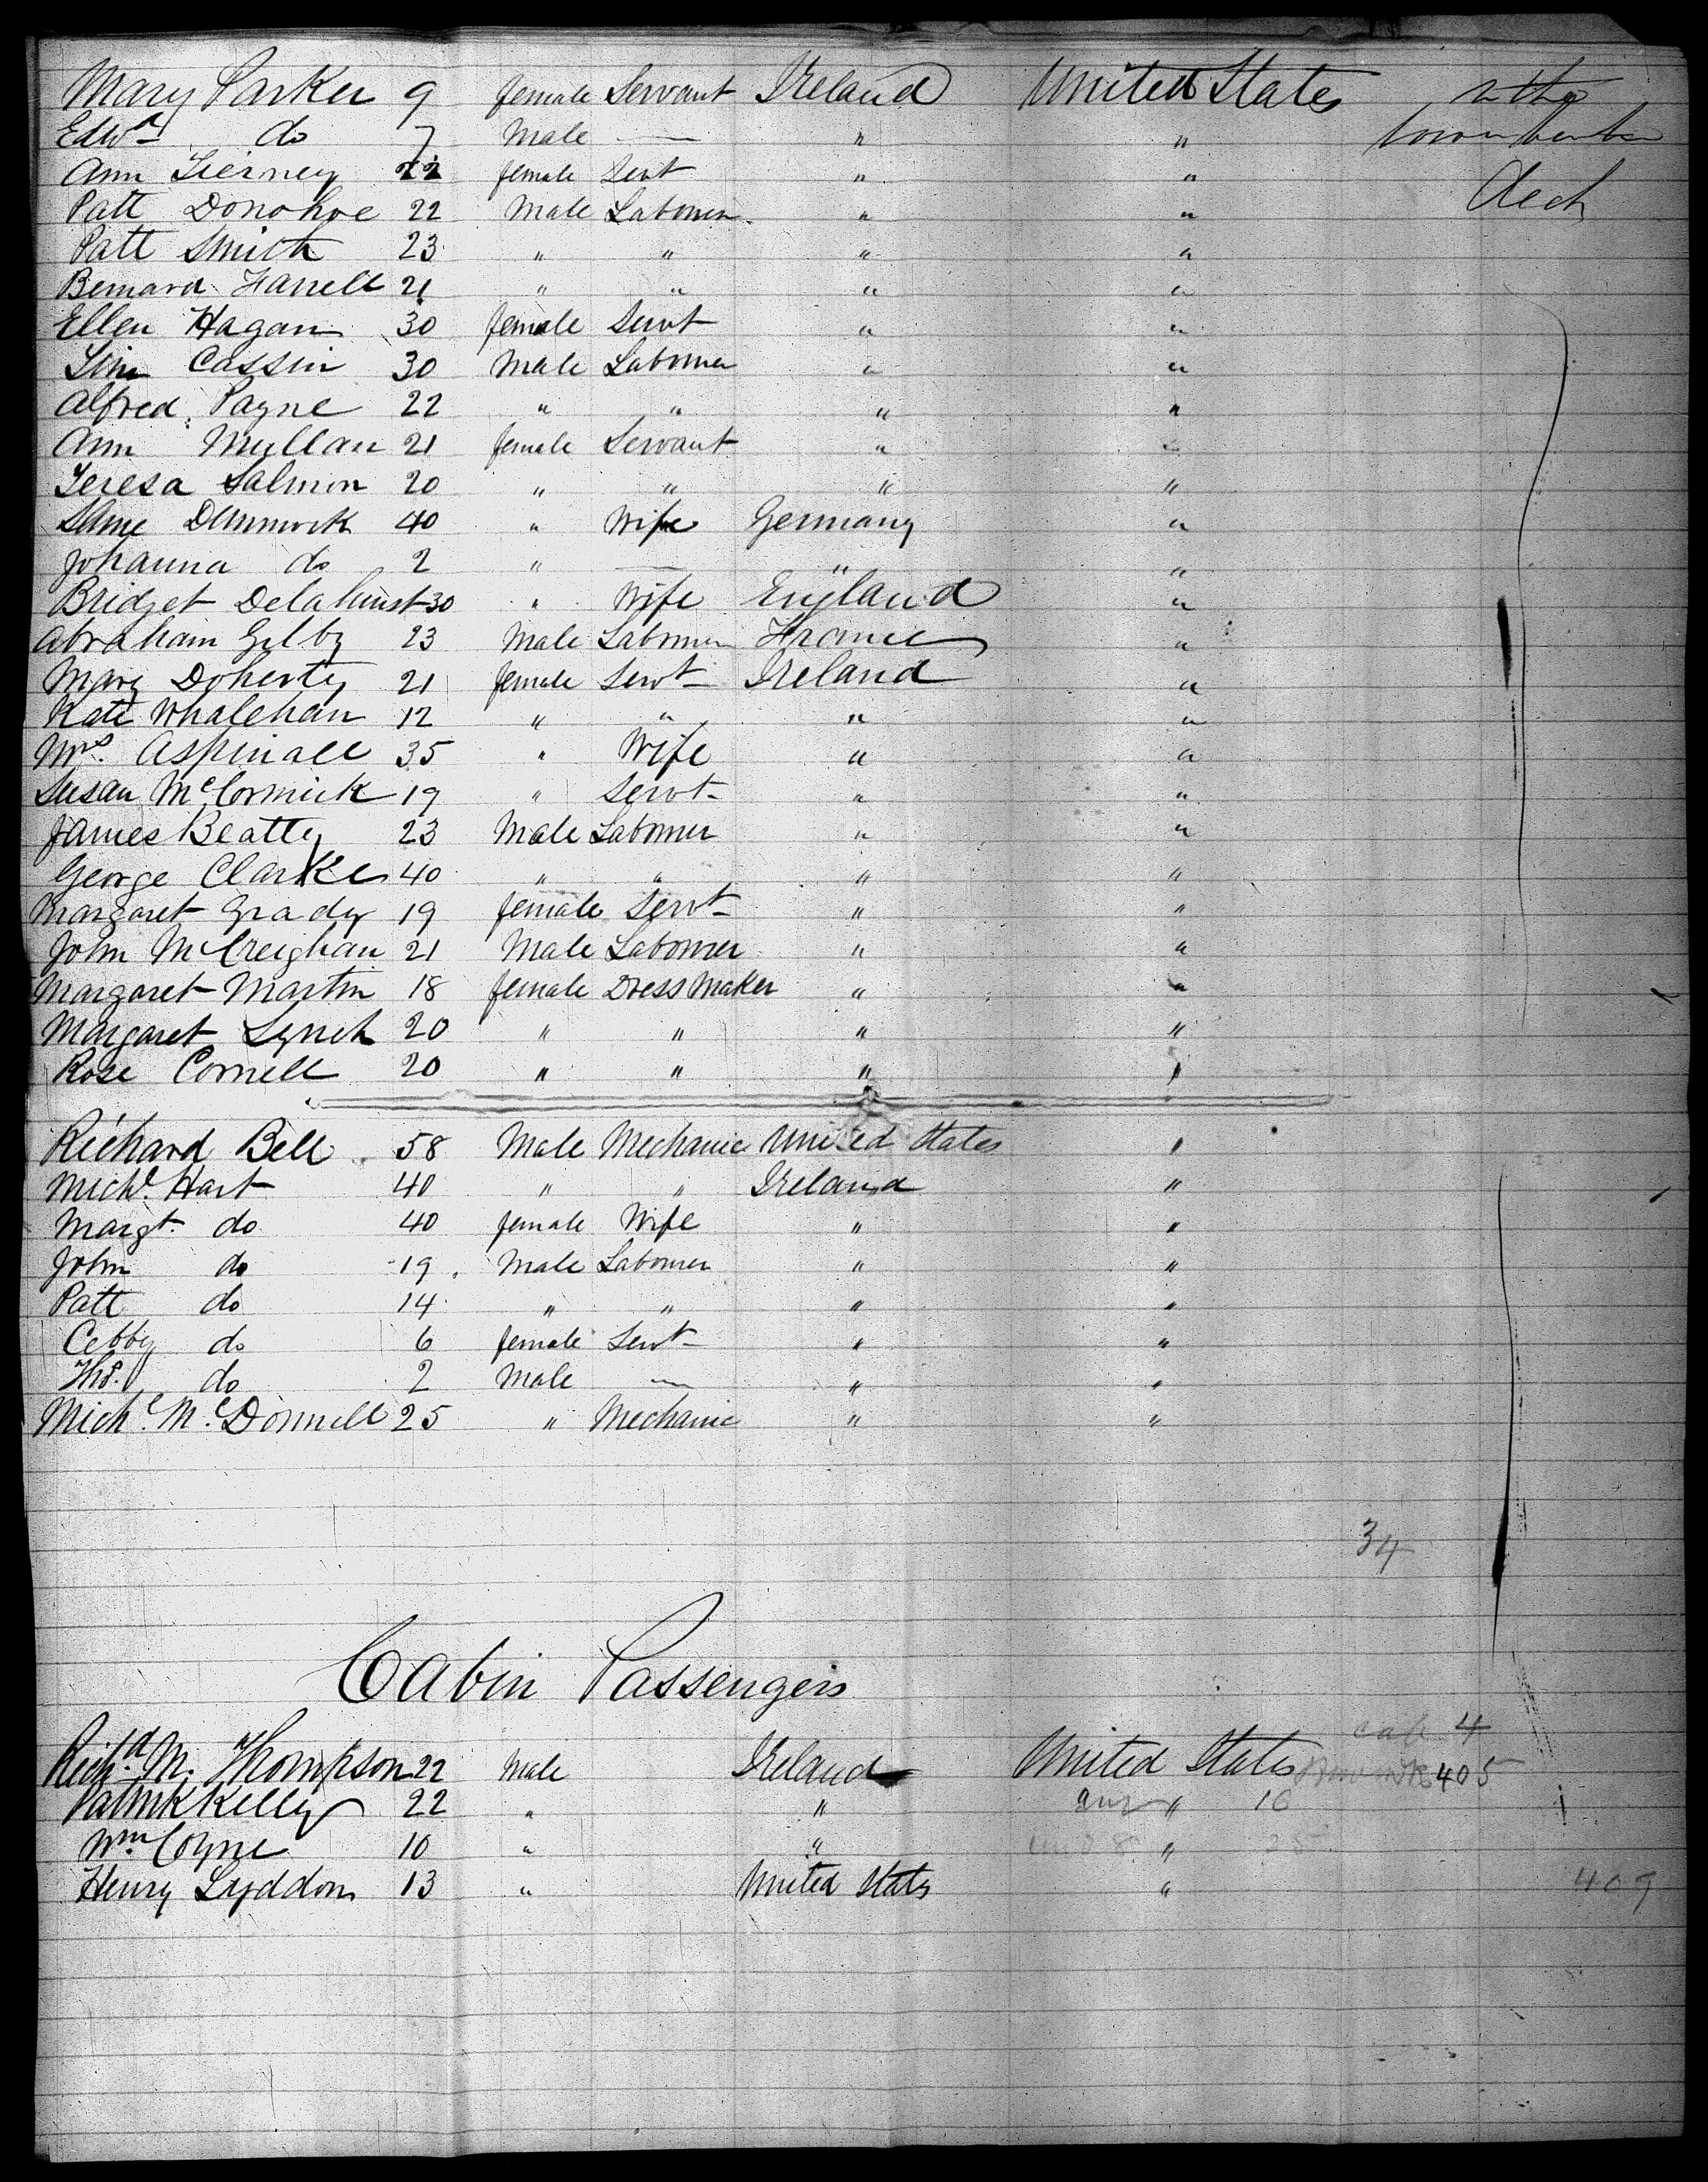 Mary Parker 9 female Servant Ireland United States in the
Edwd do 7 Male — " " lower between
Ann Tierney 22 female Servt " " Deck
Patt Donohoe 22 Male Labourer " "
Patt Smith 23 " " " "
Bernard Farrell 21 " " " "
Ellen Hagan 30 female Servt " "
Tim Cassin 30 Male Labourer " "
Alfred Payne 22 " " " "
Ann Mullan 21 female Servant " "
Teresa Salmon 20 " " " "
40 " Wife Germany "
Johanna do 2 " — " "
Bridget Delahunst 30 " Wife England "
Abraham Gilby 23 Male Labourer France "
Mary Doherty 21 female Servt Ireland "
Kate Whalehan 12 " " " "
Mrs. Aspinall 35 " Wife " "
Susan McCormick 19 " Servt " "
James Beatty 23 Male Labourer " "
George Clarke 40 " " " "
Margaret Grady 19 female Servt " "
John McCreighan 21 Male Labourer " "
Margaret Martin 18 female Dress Maker " "
Margaret Lynch 20 " " " "
Rose Cornell 20 " " " "
Richard Bell 58 Male Mechanic United States "
Michl. Hart 40 " " Ireland "
Margt. do 40 female Wife " "
John do 19 Male Labourer " "
Patt do 14 " " " "
Cebby do 6 female Servt " "
Ths. do 2 Male — " "
Michl. McDonnell 25 " Mechanic " "
34
Cabin Passengers
cab 4
Richd. M. Thompson 22 Male Ireland United States 405
Patrick Kelly 22 " " " 10
Wm. Coyne 10 " " " 25
Henry Lyddon 13 " United States " 409